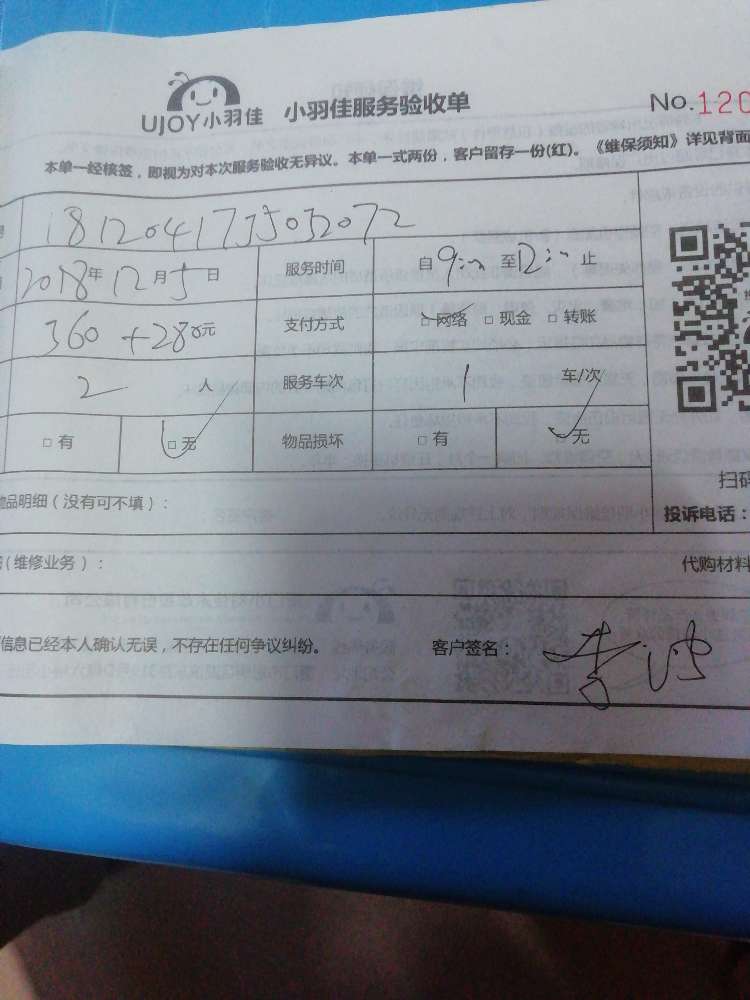 UJOY小羽佳 小羽佳服务验收单 No.120
本单一经核签，即视为对本次服务验收无异议。本单一式两份，客户留存一份(红)。《维保须知》详见背面
2018年12月5日 服务时间 自9:00至12:00止
360+280元 支付方式 □网络 □现金 □转账
2人 服务车次 1 车/次
□有 □无 物品损坏 □有 □无
扫码
品明细（没有可不填）： 投诉电话：
(维修业务）： 代购材料
信息已经本人确认无误，不存在任何争议纠纷。 客户签名：